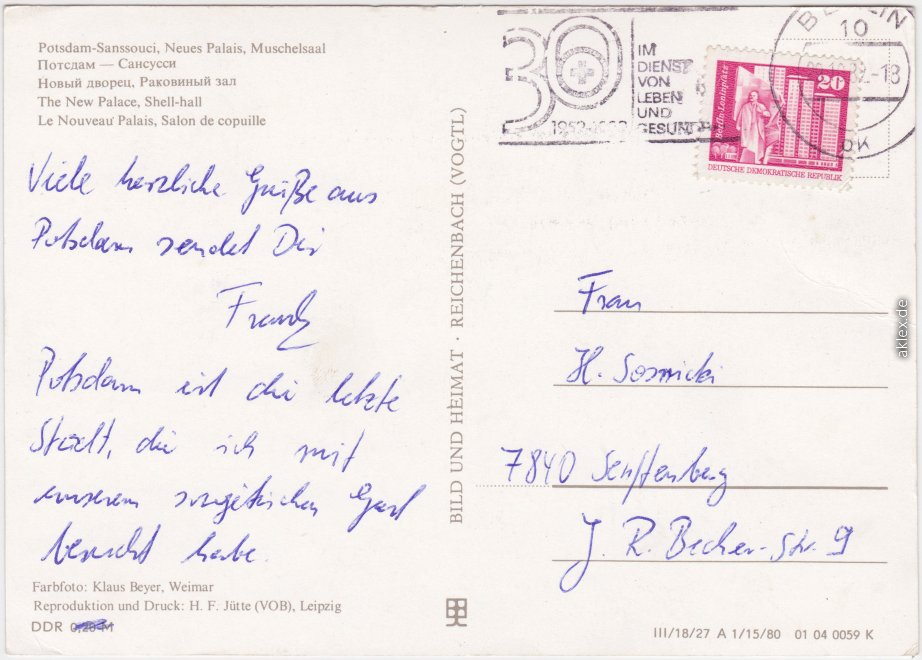 Potsdam-Sanssouci, Neues Palais, Muschelsaal
Потсдам — Сансусси
Новый дворец, Раковиный зал
The New Palace, Shell-hall
Le Nouveau Palais, Salon de copuille
Viele herzliche Grüße aus
Potsdam sendet Dir
Frank
Potsdam ist die letzte
Stadt, die ich mit
unserem sowjetischen Gast
besucht habe.
Farbfoto: Klaus Beyer, Weimar
Reproduktion und Druck: H. F. Jütte (VOB), Leipzig
DDR 0,20 M
BILD UND HEIMAT · REICHENBACH (VOGTL)
30
1952-1982
IM
DIENST
VON
LEBEN
UND
GESUND
BERLIN
10
20
Berlin-Leninplatz
DEUTSCHE DEMOKRATISCHE REPUBLIK
Frau
H. Sosnicki
7840 Senftenberg
J. R. Becher-Str. 9
III/18/27 A 1/15/80 01 04 0059 K
aklex.de